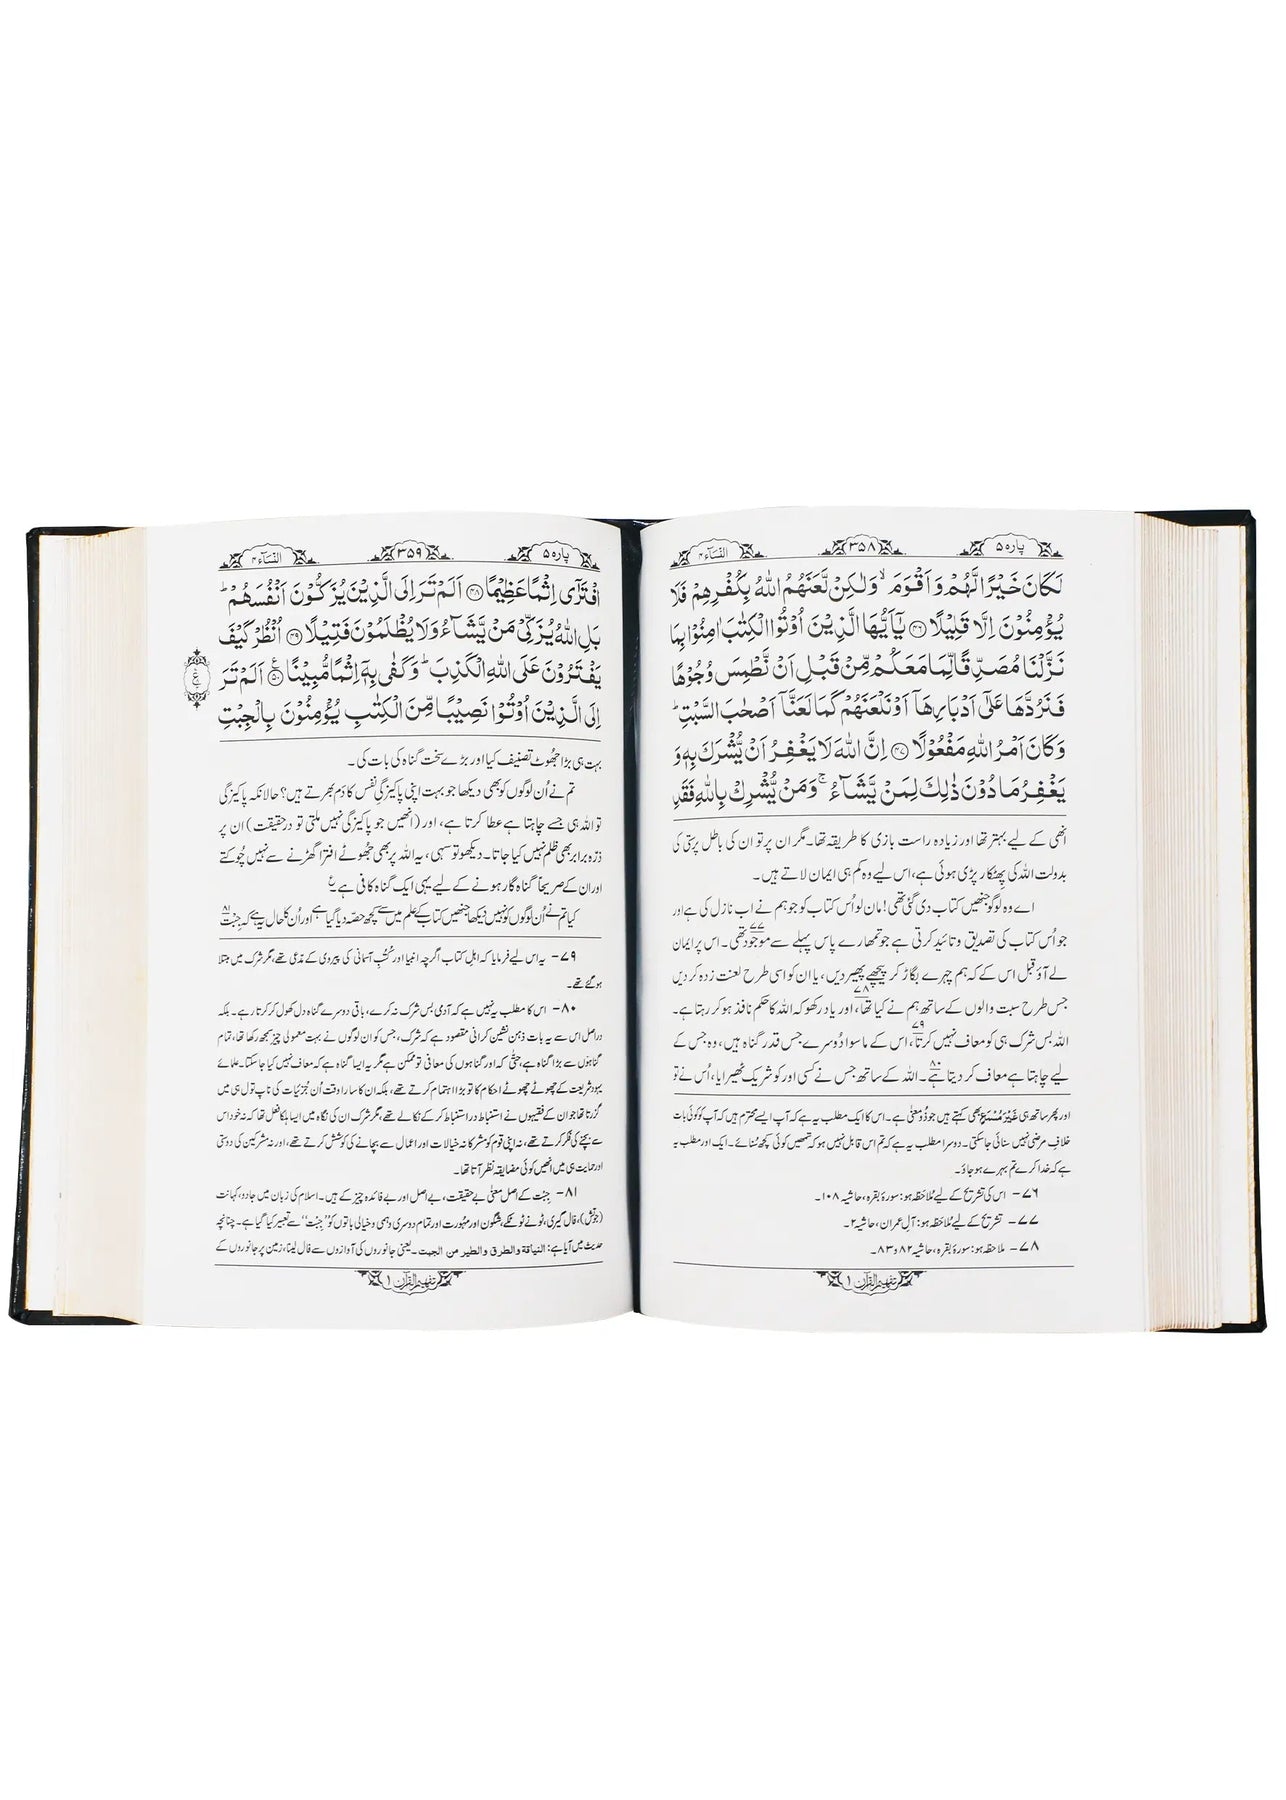 پارہ ۵
۳۵۸
النسآء ۴
لَكَانَ خَيْرًا لَّهُمْ وَاَقْوَمَ ۙ وَلٰكِنْ لَّعَنَهُمُ اللّٰهُ بِكُفْرِهِمْ فَلَا
يُؤْمِنُوْنَ اِلَّا قَلِيْلًا ﴿۴۶﴾ يٰۤاَيُّهَا الَّذِيْنَ اُوْتُوا الْكِتٰبَ اٰمِنُوْا بِمَا
نَزَّلْنَا مُصَدِّقًا لِّمَا مَعَكُمْ مِّنْ قَبْلِ اَنْ نَّطْمِسَ وُجُوْهًا
فَنَرُدَّهَا عَلٰۤى اَدْبَارِهَاۤ اَوْ نَلْعَنَهُمْ كَمَا لَعَنَّاۤ اَصْحٰبَ السَّبْتِ ؕ
وَكَانَ اَمْرُ اللّٰهِ مَفْعُوْلًا ﴿۴۷﴾ اِنَّ اللّٰهَ لَا يَغْفِرُ اَنْ يُّشْرَكَ بِهٖ وَ
يَغْفِرُ مَا دُوْنَ ذٰلِكَ لِمَنْ يَّشَآءُ ۚ وَمَنْ يُّشْرِكْ بِاللّٰهِ فَقَدِ
انھی کے لیے بہتر تھا اور زیادہ راست بازی کا طریقہ تھا۔ مگر ان پر تو ان کی باطل پرستی کی
بدولت اللہ کی پھٹکار پڑی ہوئی ہے، اس لیے وہ کم ہی ایمان لاتے ہیں۔
اے وہ لوگو جنھیں کتاب دی گئی تھی! مان لو اُس کتاب کو جو ہم نے اب نازل کی ہے اور
جو اُس کتاب کی تصدیق و تائید کرتی ہے جو تمھارے پاس پہلے سے موجود تھی۷۷۔ اس پر ایمان
لے آؤ قبل اس کے کہ ہم چہرے بگاڑ کر پیچھے پھیر دیں، یا ان کو اسی طرح لعنت زدہ کر دیں
جس طرح سبت والوں کے ساتھ ہم نے کیا تھا۷۸، اور یاد رکھو کہ اللہ کا حکم نافذ ہو کر رہتا ہے۔
اللہ بس شرک ہی کو معاف نہیں کرتا۷۹، اس کے ماسوا دُوسرے جس قدر گناہ ہیں، وہ جس کے
لیے چاہتا ہے معاف کر دیتا ہے۸۰۔ اللہ کے ساتھ جس نے کسی اور کو شریک ٹھیرایا، اُس نے تو
اور پھر ساتھ ہی غَیْرَ مُسْمَعٍ بھی کہتے ہیں جو ذُو معنی ہے۔ اس کا ایک مطلب یہ ہے کہ آپ ایسے محترم ہیں کہ آپ کو کوئی بات
خلافِ مرضی نہیں سنائی جا سکتی۔ دوسرا مطلب یہ ہے کہ تم اس قابل نہیں ہو کہ تمھیں کوئی کچھ سُنائے۔ ایک اور مطلب یہ
ہے کہ خدا کرے تم بہرے ہو جاؤ۔
۷۶- اس کی تشریح کے لیے مُلاحَظہ ہو: سورۂ بقرہ، حاشیہ ۱۰۸۔
۷۷- تشریح کے لیے مُلاحَظہ ہو: آل عمران، حاشیہ ۲۔
۷۸- ملاحظہ ہو: سورۂ بقرہ، حاشیہ ۸۲ و ۸۳۔
تفہیم القرآن ۱
پارہ ۵
۳۵۹
النسآء ۴
افْتَرٰۤى اِثْمًا عَظِيْمًا ﴿۴۸﴾ اَلَمْ تَرَ اِلَى الَّذِيْنَ يُزَكُّوْنَ اَنْفُسَهُمْ ؕ
بَلِ اللّٰهُ يُزَكِّيْ مَنْ يَّشَآءُ وَلَا يُظْلَمُوْنَ فَتِيْلًا ﴿۴۹﴾ اُنْظُرْ كَيْفَ
يَفْتَرُوْنَ عَلَى اللّٰهِ الْكَذِبَ ؕ وَكَفٰى بِهٖۤ اِثْمًا مُّبِيْنًا ﴿۵۰﴾ اَلَمْ تَرَ
اِلَى الَّذِيْنَ اُوْتُوْا نَصِيْبًا مِّنَ الْكِتٰبِ يُؤْمِنُوْنَ بِالْجِبْتِ
بہت ہی بڑا جھُوٹ تصنیف کیا اور بڑے سخت گناہ کی بات کی۔
تم نے اُن لوگوں کو بھی دیکھا جو بہت اپنی پاکیزگیِ نفس کا دَم بھرتے ہیں؟ حالانکہ پاکیزگی
تو اللہ ہی جسے چاہتا ہے عطا کرتا ہے، اور (انھیں جو پاکیزگی نہیں ملتی تو درحقیقت) ان پر
ذرّہ برابر بھی ظلم نہیں کیا جاتا۔ دیکھو تو سہی، یہ اللہ پر بھی جُھوٹے افترا گھڑنے سے نہیں چُوکتے
اور ان کے صریحاً گناہ گار ہونے کے لیے یہی ایک گناہ کافی ہے۔ ع
کیا تم نے اُن لوگوں کو نہیں دیکھا جنھیں کتاب کے علم میں سے کچھ حصّہ دیا گیا ہے اور اُن کا حال یہ ہے کہ جِبْت۸۱
۷۹- یہ اس لیے فرمایا کہ اہلِ کتاب اگرچہ انبیا اور کُتُبِ آسمانی کی پیروی کے مدّعی تھے، مگر شرک میں مبتلا
ہو گئے تھے۔
۸۰- اس کا مطلب یہ نہیں ہے کہ آدمی بس شرک نہ کرے، باقی دوسرے گناہ دل کھول کر کرتا رہے۔ بلکہ
دراصل اس سے یہ بات ذہن نشین کرانی مقصود ہے کہ شرک، جس کو ان لوگوں نے بہت معمولی چیز سمجھ رکھا تھا، تمام
گناہوں سے بڑا گناہ ہے، حتّٰی کہ اور گناہوں کی معافی تو ممکن ہے مگر یہ ایسا گناہ ہے کہ معاف نہیں کیا جا سکتا۔ علمائے
یہود شریعت کے چھوٹے چھوٹے احکام کا تو بڑا اہتمام کرتے تھے، بلکہ ان کا سارا وقت اُن جُزئیات کی ناپ تول ہی میں
گزرتا تھا جو ان کے فقیہوں نے استنباط در استنباط کر کے نکالے تھے، مگر شرک ان کی نگاہ میں ایسا ہلکا فعل تھا کہ نہ خود اس
سے بچنے کی فکر کرتے تھے، نہ اپنی قوم کو مشرکانہ خیالات اور اعمال سے بچانے کی کوشش کرتے تھے، اور نہ مشرکین کی دوستی
اور حمایت ہی میں انھیں کوئی مضایقہ نظر آتا تھا۔
۸۱- جِبْت کے اصل معنٰی بے حقیقت، بے اصل اور بے فائدہ چیز کے ہیں۔ اسلام کی زبان میں جادو، کہانت
(جوتش)، فال گیری، ٹونے ٹوٹکے، شگون اور مہُورت اور تمام دوسری وہمی و خیالی باتوں کو ”جِبْت“ سے تعبیر کیا گیا ہے۔ چنانچہ
حدیث میں آیا ہے: النیاقة والطرق والطیر من الجبت۔ یعنی جانوروں کی آوازوں سے فال لینا، زمین پر جانوروں کے
تفہیم القرآن ۱